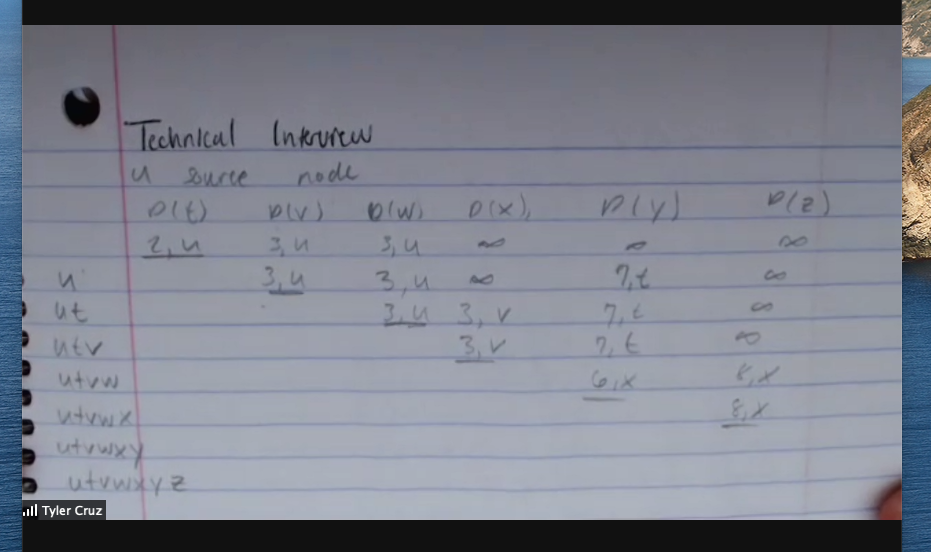 Technical Interview
u source node
D(t) D(v) D(w) D(x), D(y) D(z)
2, u 3, u 3, u ∞ ∞ ∞
u 3, u 3, u ∞ 7, t ∞
ut 3, u 3, v 7, t ∞
utv 3, v 7, t ∞
utvw 6, x 8, x
utvwx 8, x
utvwxy
utvwxyz
Tyler Cruz